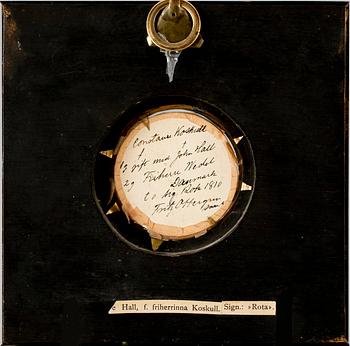 Constance Koskull
1g gift med John Hall
2g Friherre Wedel
Danmark
Sig. Rota 1810
Fritz Ottergren
e Hall, f. friherrinna Koskull. Sign.: »Rota».